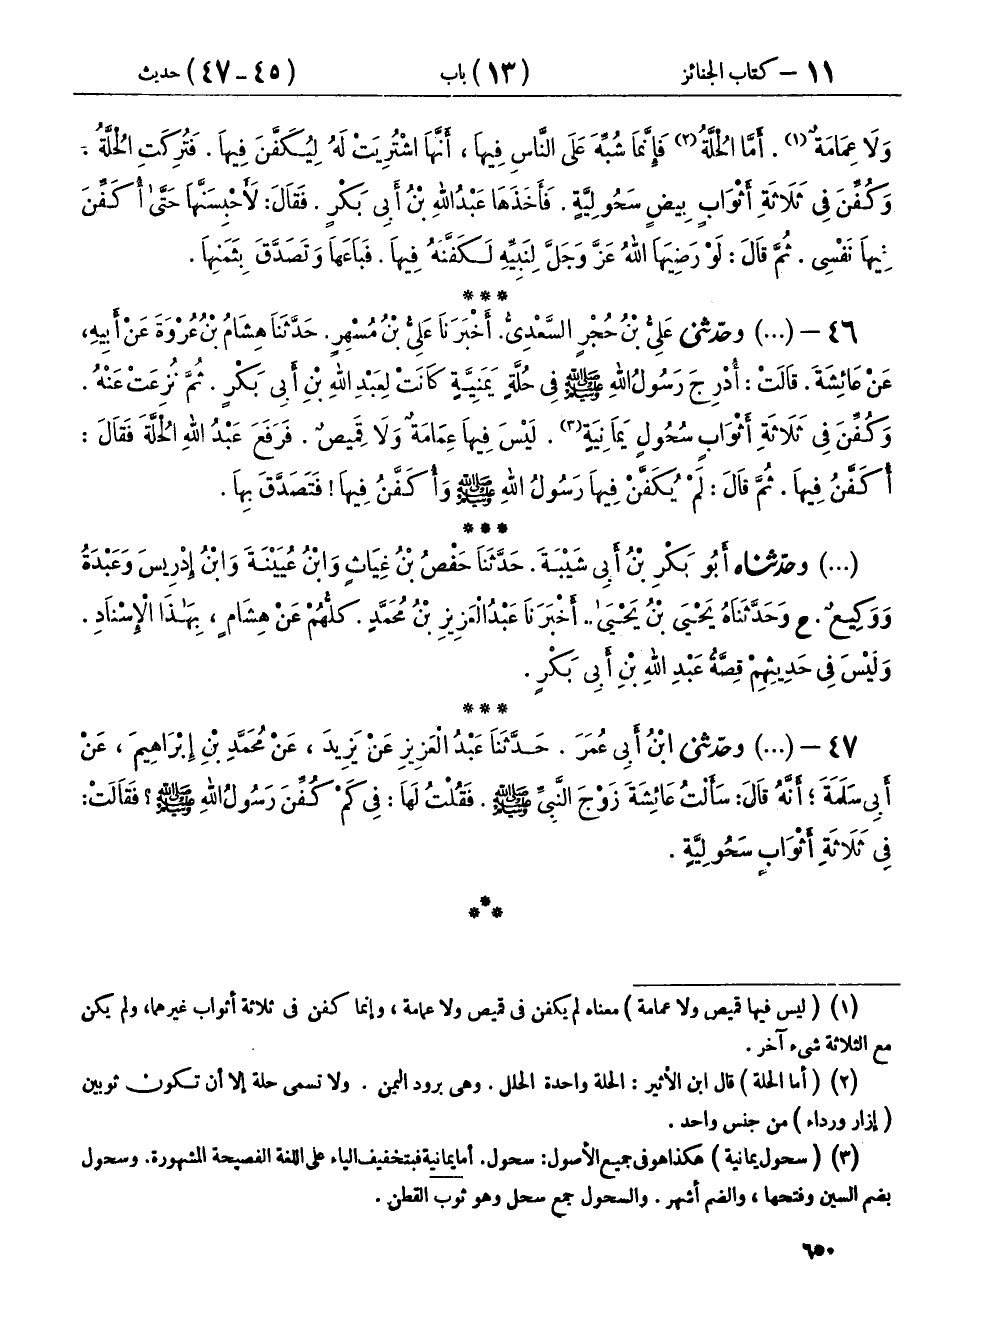 ١١ – كتاب الجنائز (١٣) باب (٤٥ – ٤٧) حديث
وَلَا عِمَامَةٌ (١) . أَمَّا الْحُلَّةُ (٢) فَإِنَّمَا شُبِّهَ عَلَى النَّاسِ فِيهَا ، أَنَّهَا اشْتُرِيَتْ لَهُ لِيُكَفَّنَ فِيهَا . فَتُرِكَتِ الْحُلَّةُ .
وَكُفِّنَ فِى ثَلَاثَةِ أَثْوَابٍ بِيضٍ سَحُولِيَّةٍ . فَأَخَذَهَا عَبْدُ اللهِ بْنُ أَبِى بَكْرٍ . فَقَالَ : لَأَحْبِسَنَّهَا حَتَّى أُكَفِّنَ
فِيهَا نَفْسِى . ثُمَّ قَالَ : لَوْ رَضِيَهَا اللهُ عَزَّ وَجَلَّ لِنَبِيِّهِ لَكَفَّنَهُ فِيهَا . فَبَاعَهَا وَتَصَدَّقَ بِثَمَنِهَا .
***
٤٦ – (...) وحَدَّثَنِى عَلِىُّ بْنُ حُجْرٍ السَّعْدِىُّ . أَخْبَرَنَا عَلِىُّ بْنُ مُسْهِرٍ . حَدَّثَنَا هِشَامُ بْنُ عُرْوَةَ عَنْ أَبِيهِ ،
عَنْ عَائِشَةَ . قَالَتْ : أُدْرِجَ رَسُولُ اللهِ ﷺ فِى حُلَّةٍ يَمَنِيَّةٍ كَانَتْ لِعَبْدِ اللهِ بْنِ أَبِى بَكْرٍ . ثُمَّ نُزِعَتْ عَنْهُ .
وَكُفِّنَ فِى ثَلَاثَةِ أَثْوَابٍ سُحُولٍ يَمَانِيَةٍ (٣) . لَيْسَ فِيهَا عِمَامَةٌ وَلَا قَمِيصٌ . فَرَفَعَ عَبْدُ اللهِ الْحُلَّةَ فَقَالَ :
أُكَفَّنُ فِيهَا . ثُمَّ قَالَ : لَمْ يُكَفَّنْ فِيهَا رَسُولُ اللهِ ﷺ وَأُكَفَّنُ فِيهَا ! فَتَصَدَّقَ بِهَا .
***
(...) وحَدَّثَنَاه أَبُو بَكْرِ بْنُ أَبِى شَيْبَةَ . حَدَّثَنَا حَفْصُ بْنُ غِيَاثٍ وَابْنُ عُيَيْنَةَ وَابْنُ إِدْرِيسَ وَعَبْدَةُ
وَوَكِيعٌ . ح وَحَدَّثَنَاهُ يَحْيَى بْنُ يَحْيَى . أَخْبَرَنَا عَبْدُ الْعَزِيزِ بْنُ مُحَمَّدٍ . كُلُّهُمْ عَنْ هِشَامٍ ، بِهَذَا الْإِسْنَادِ .
وَلَيْسَ فِى حَدِيثِهِمْ قِصَّةُ عَبْدِ اللهِ بْنِ أَبِى بَكْرٍ .
***
٤٧ – (...) وحَدَّثَنِى ابْنُ أَبِى عُمَرَ . حَدَّثَنَا عَبْدُ الْعَزِيزِ عَنْ يَزِيدَ ، عَنْ مُحَمَّدِ بْنِ إِبْرَاهِيمَ ، عَنْ
أَبِى سَلَمَةَ ؛ أَنَّهُ قَالَ : سَأَلْتُ عَائِشَةَ زَوْجَ النَّبِىِّ ﷺ . فَقُلْتُ لَهَا : فِى كَمْ كُفِّنَ رَسُولُ اللهِ ﷺ ؟ فَقَالَتْ :
فِى ثَلَاثَةِ أَثْوَابٍ سَحُولِيَّةٍ .
***
(١) ( ليس فيها قميص ولا عمامة ) معناه لم يكفن فى قميص ولا عمامة ، وإنما كفن فى ثلاثة أثواب غيرهما، ولم يكن
مع الثلاثة شىء آخر .
(٢) ( أما الحلة ) قال ابن الأثير : الحلة واحدة الحلل . وهى برود اليمن . ولا تسمى حلة إلا أن تكون ثوبين
( إزار ورداء ) من جنس واحد .
(٣) ( سحول يمانية ) هكذا هو فى جميع الأصول : سحول . أما يمانية فبتخفيف الياء على اللغة الفصيحة المشهورة . وسحول
بضم السين وفتحها ، والضم أشهر . والسحول جمع سحل وهو ثوب القطن .
٦٥٠